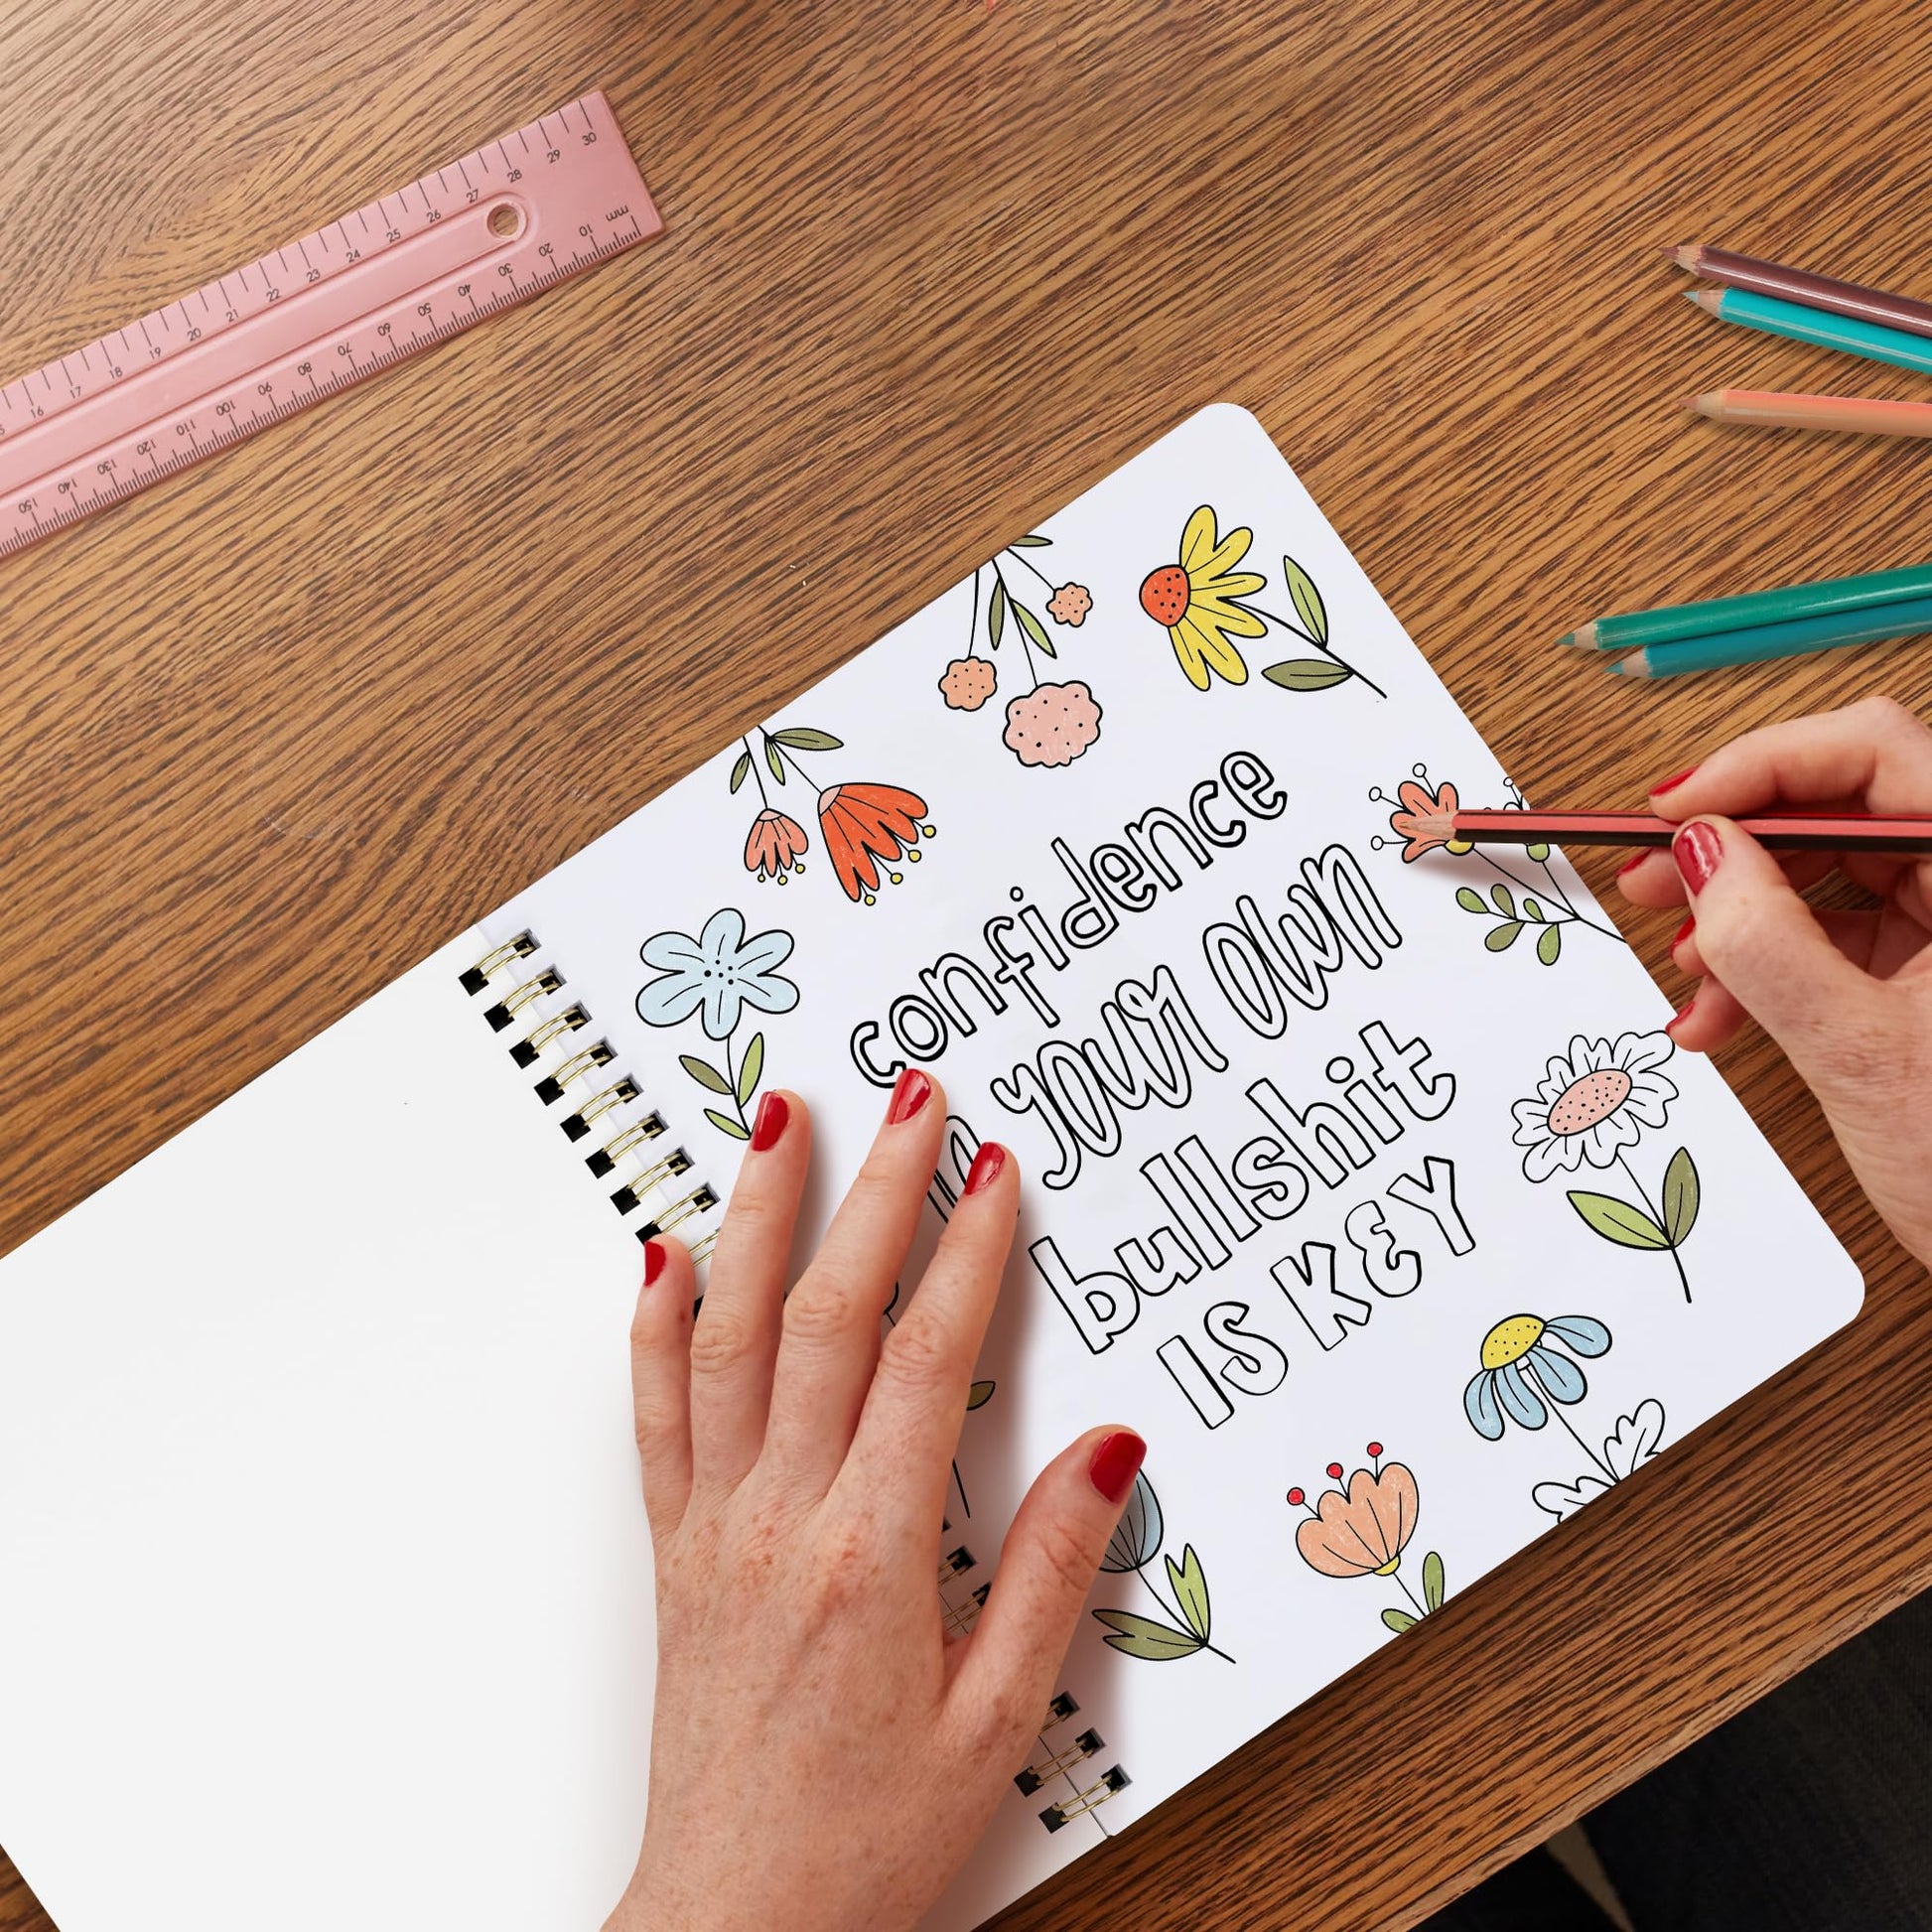 16 17 18 19 20 21 22 23 24 25 26 27 28 29 30
mm 10 20 30 40 50 60 70 80 90 100 110 120 130 140 150
confidence
in your own
bullshit
IS KEY